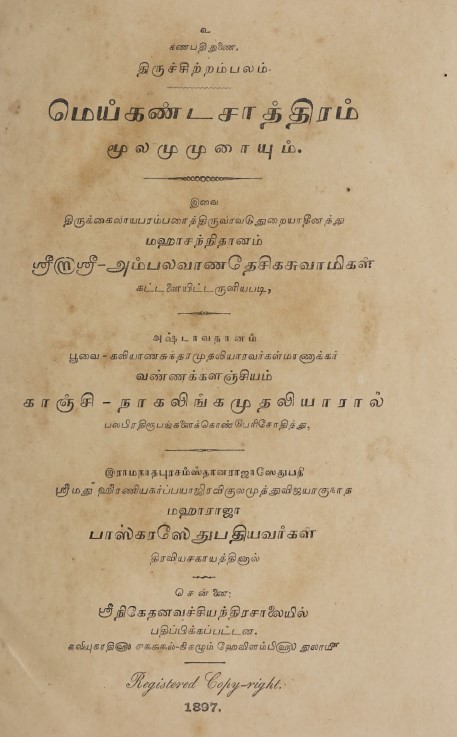 உ
கணபதி துணை.
திருச்சிற்றம்பலம்.
மெய்கண்டசாத்திரம்
மூலமுமுரையும்.
இவை
திருக்கைலாயபரம்பரைத்திருவாவடுதுறையாதீனத்து
மஹாசந்நிதானம்
ஸ்ரீலஸ்ரீ-அம்பலவாணதேசிகசுவாமிகள்
கட்டளையிட்டருளியபடி,
அஷ்டாவதானம்
பூவை-கலியாணசுந்தரமுதலியாரவர்கள்மாணாக்கர்
வண்ணக்களஞ்சியம்
காஞ்சி-நாகலிங்கமுதலியாரால்
பலபிரதிரூபங்களைக்கொண்பேரிசோதித்து,
இராமநாதபுரசம்ஸ்தானராஜாஸேதுபதி
ஸ்ரீமது ஹிரணியகர்ப்பயாஜிரவிகுலமுத்துவிஜயரகுநாத
மஹாராஜா
பாஸ்கரஸேதுபதியவர்கள்
திரவியசகாயத்தினால்
சென்னை:
ஸ்ரீநிகேதனவச்சியந்திரசாலையில்
பதிப்பிக்கப்பட்டன.
ஹேவிளம்பி௵
Registered Copy-right.
1897.